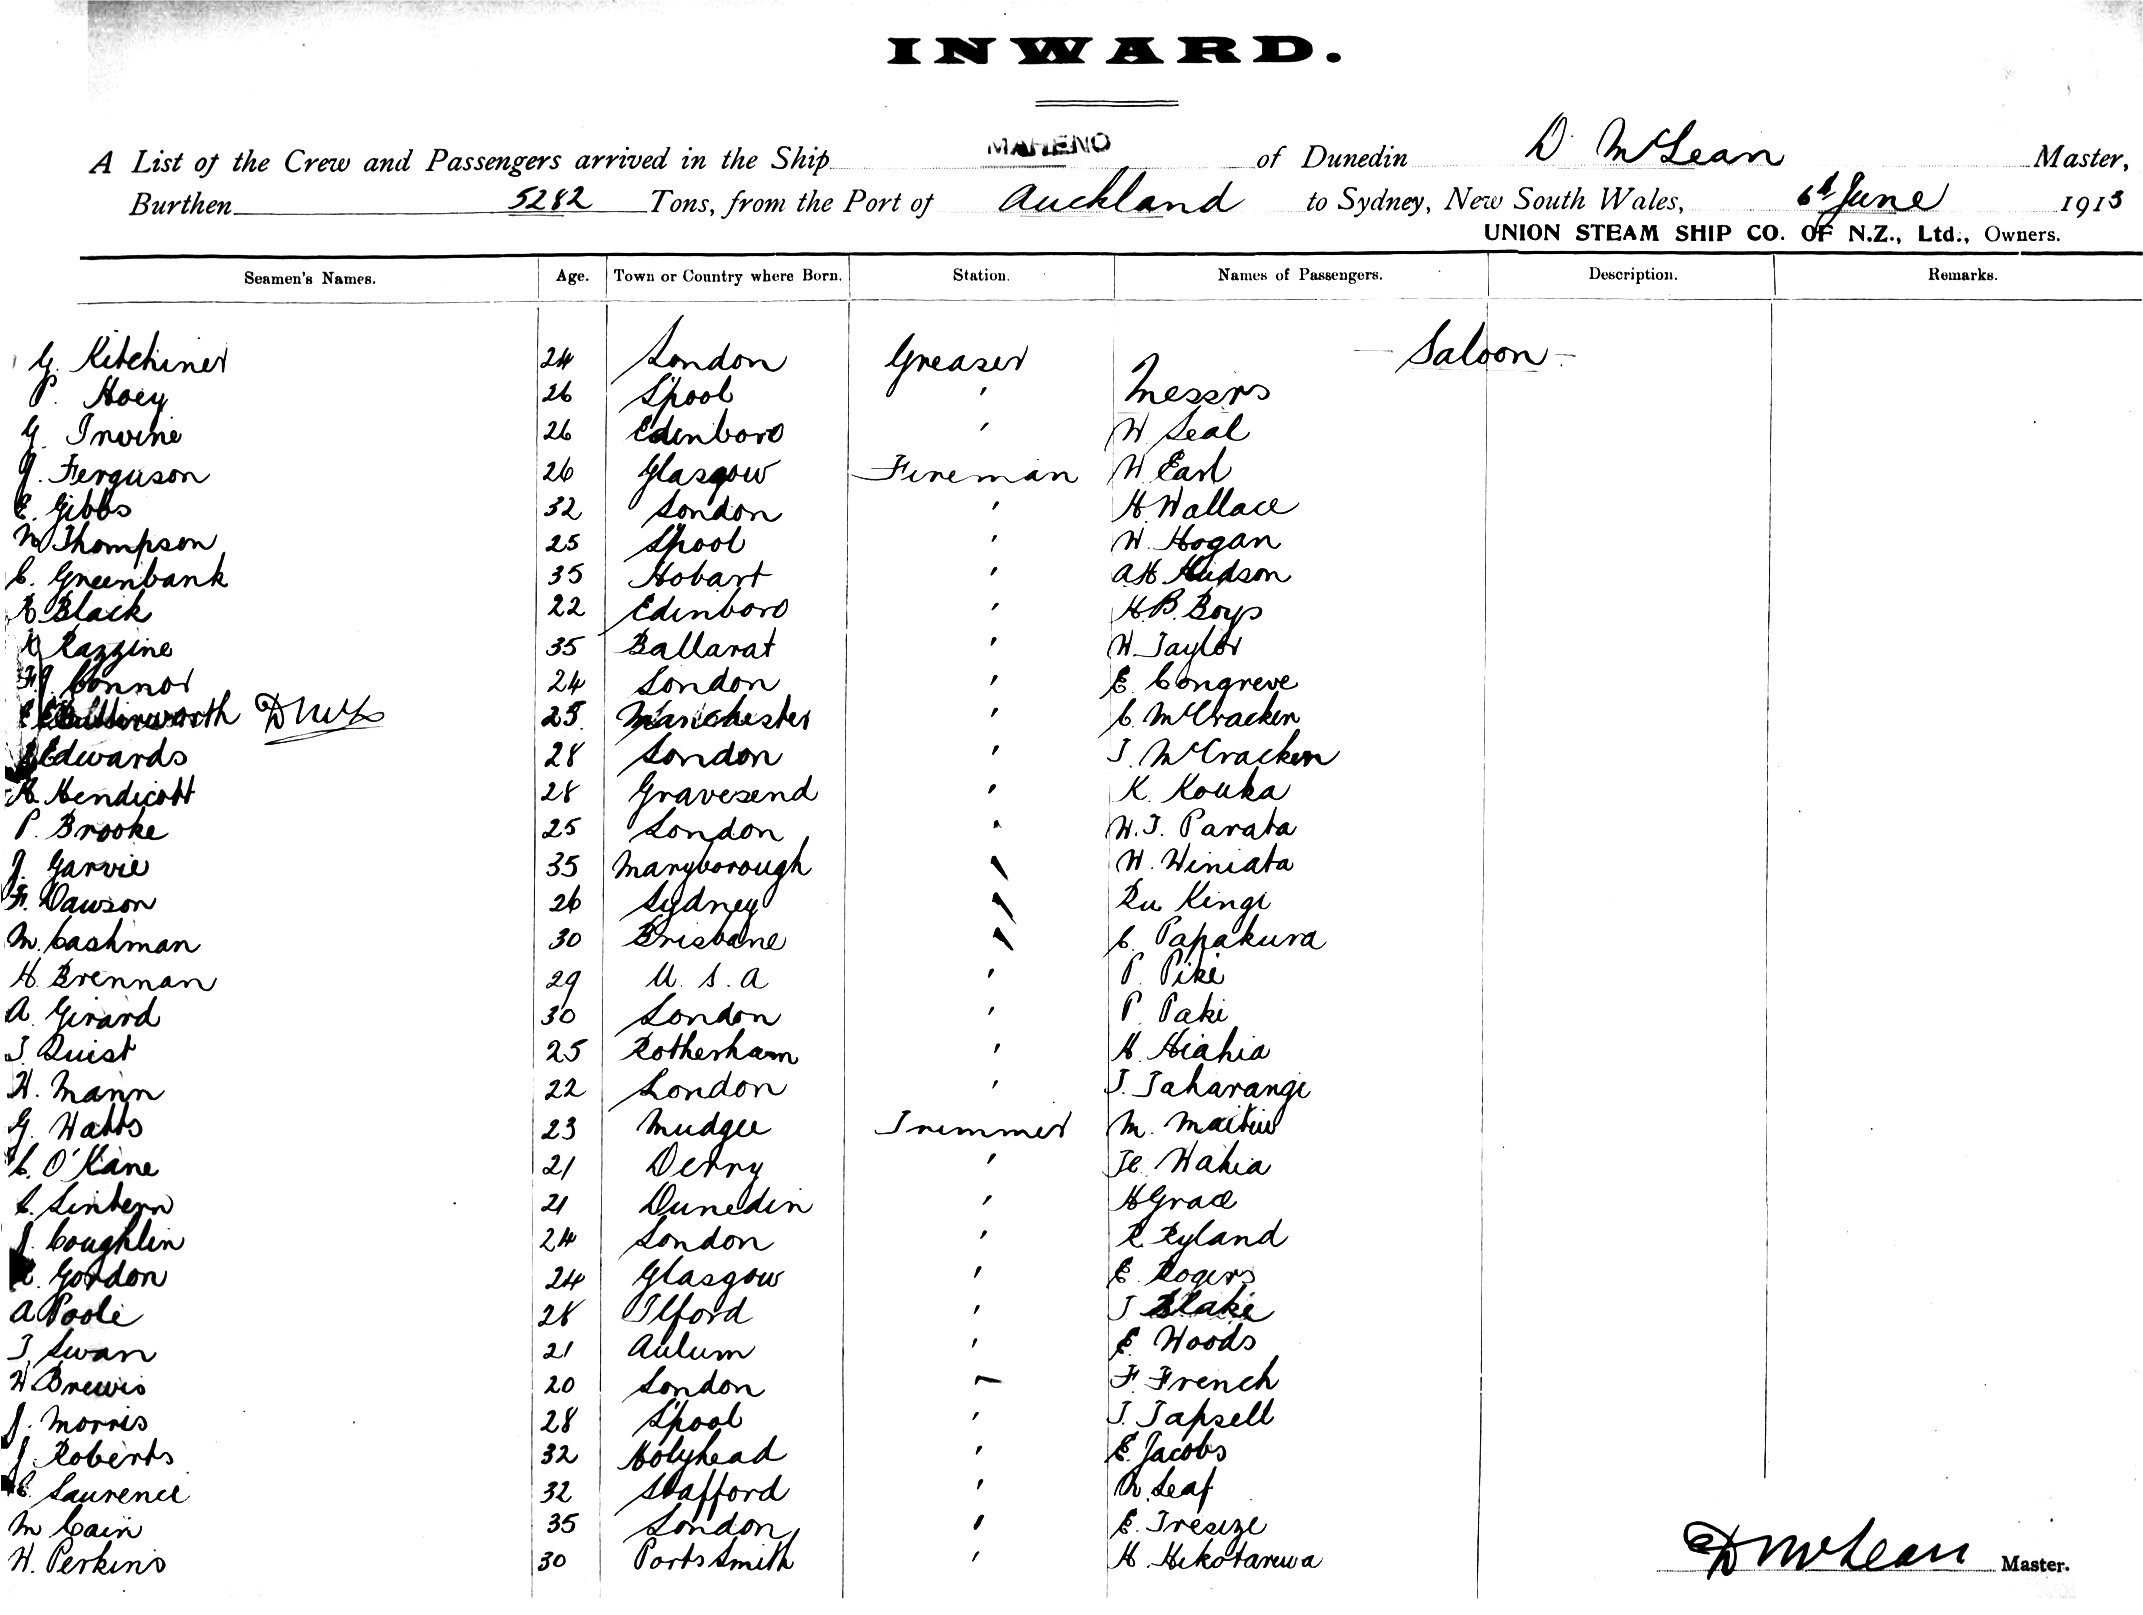 INWARD.
A List of the Crew and Passengers arrived in the Ship MAHENO of Dunedin D McLean Master,
Burthen 5282 Tons, from the Port of Auckland to Sydney, New South Wales, 6th June 1913
UNION STEAM SHIP CO. OF N.Z., Ltd., Owners.
Seamen's Names. Age. Town or Country where Born. Station. Names of Passengers. Description. Remarks.
G. Kitchiner 24 London Greaser — Saloon —
P. Hoey 26 L'pool ' Messrs
G. Irvine 26 Edinboro ' W Seal
J. Ferguson 26 Glasgow Fireman W Earl
E. Gibbs 32 London ' H. Wallace
W Thompson 25 L'pool ' W. Hogan
C. Greenbank 35 Hobart ' A H Hudson
R Black 22 Edinboro ' H. B. Boys
Razzine 35 Ballarat ' W. Taylor
F J Connor 24 London ' E. Congreve
E Butterworth 25 Manchester ' C. McCracken
Edwards 28 London ' J. McCracken
H. Hendicott 28 Gravesend ' K. Kouka
P. Brooke 25 London ' W. T. Parata
J. Garvie 35 Maryborough ' W. Winiata
F. Dawson 26 Sydney ' Ru Kingi
M. Cashman 30 Brisbane ' C. Papakura
H. Brennan 29 U. S. A ' P. Piki
A. Girard 30 London ' P. Paki
J. Quist 25 Rotherham ' H. Hiahia
W. Mann 22 London ' T. Taharangi
G. Watts 23 Mudgee Trimmer M.
C. O'Kane 21 Derry ' Te Wahia
C. Sintern 21 Dunedin ' H Grace
J. Coughlin 24 London ' R. Ryland
Gordon 24 Glasgow ' E. Rogers
A Poole 28 Ilford ' J Blake
J Swan 21 Aulum ' E. Woods
W Brewis 20 London ' F. French
J. Morris 28 L'pool ' J. Tapsell
J. Roberts 32 Holyhead ' E. Jacobs
E. Laurence 32 Stafford ' Leaf
M Cain 35 London ' E. Tresize
W. Perkins 30 Portssmith ' H. Hikotarewa
D McLean Master.